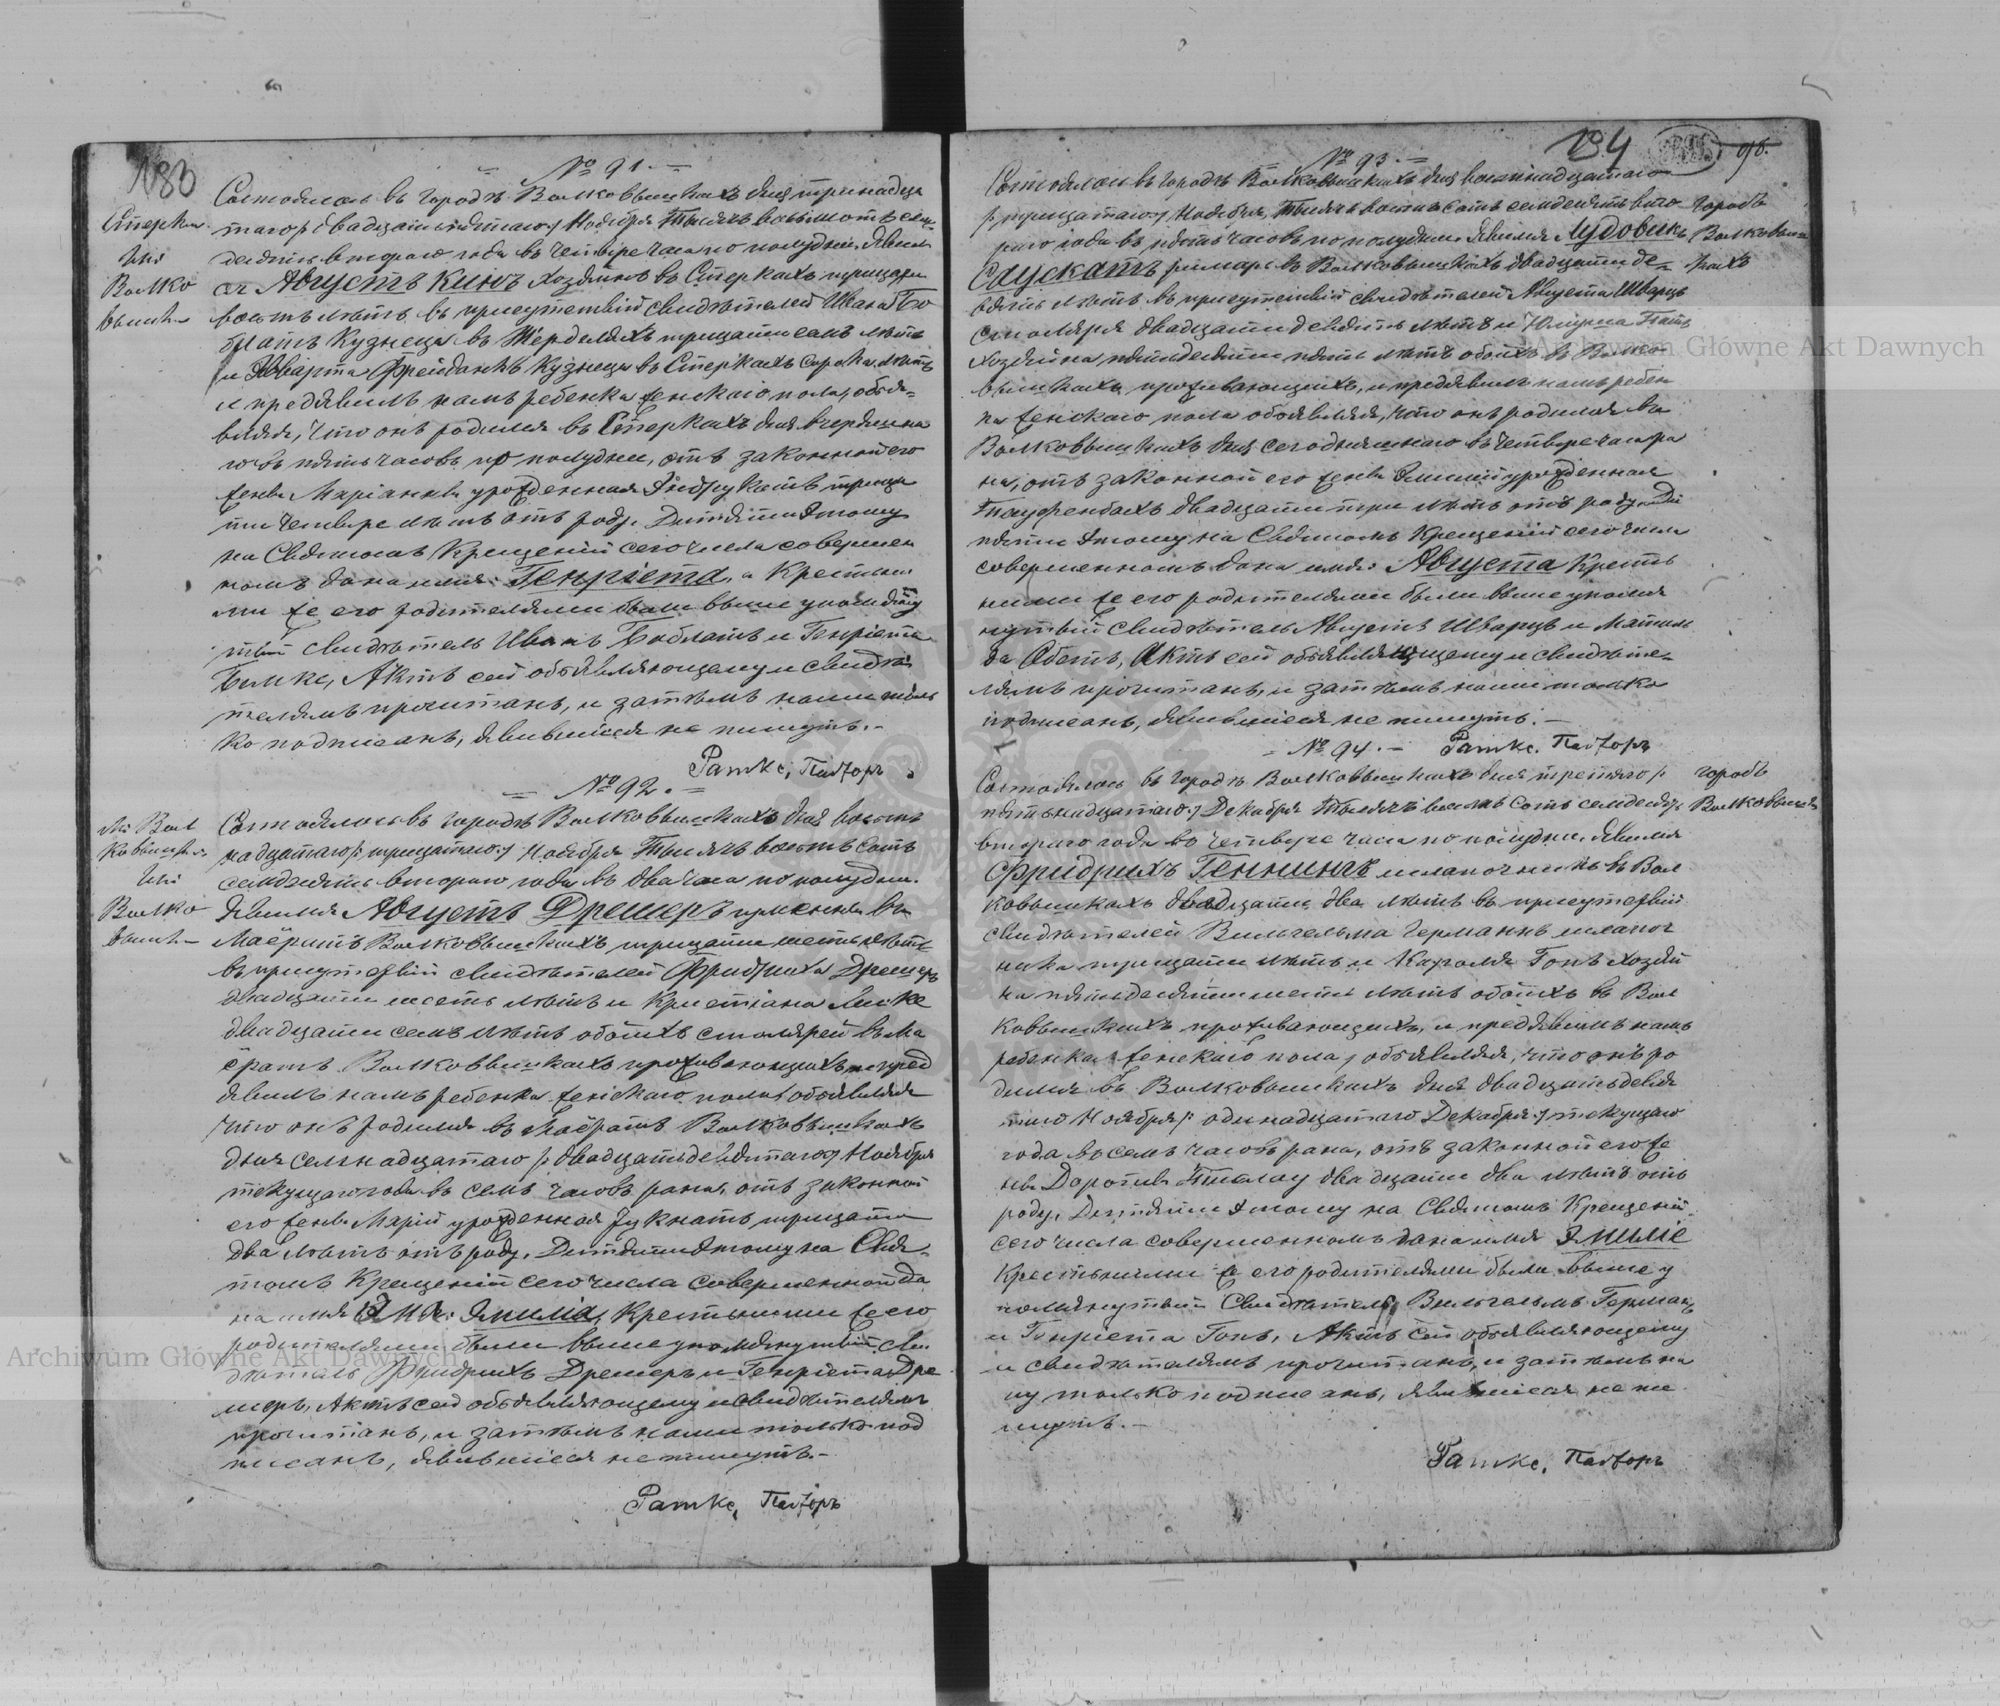 183
№ 91.
Сперки
Ги:
Волко
вышки
Состоялось въ городѣ Волковышкахъ дня тринадца
таго /: двадцатьпятаго :/ Ноября Тысяча восьмсотъ семь
десять втораго года въ четвере часа по полудни. Явил
ся Августъ Кинъ хозяинъ въ Сперкахъ тридцать
восьмь лѣтъ, въ присутствiй свидѣтелей Ивана Бо
блатъ Кузнеца въ тридцати семь лѣтъ
и Фрейданкъ Кузнеца въ Сперкахъ сорока лѣтъ
и предявилъ намъ ребенка женскаго пола, объя-
вляя, что онъ родился въ Сперкахъ дня вчерашня
го въ пять часовъ по полудни, отъ законной его
жены Марiанны урожденная трица
ти четвере лѣтъ отъ роду. Дитяти этому
на Святомъ Крещенiй сего числа совершен
номъ дано имя: Генрiета, а Крестны
ми же его родителями были выше упомяну
тый свидѣтель Иванъ Боблатъ и Генрiета
Бимке, Актъ сей объявляющему и свидѣ
телямъ прочитанъ, и затѣмъ нами толь
ко подписанъ, явившiеся не пишутъ.-
Ратке, Пасторъ
№ 92.
Волко
вышки
Состоялось въ городѣ Волковышкахъ дня восьм
надцатаго /: трицатаго :/ Ноября Тысяча восьмь сотъ
семдесять втораго года въ два часа по полудни.
Явился Августъ Дрешеръ въ
Маёратѣ Волковышкахъ трицати шесть лѣтъ
въ присутствiй свидѣтелей Фридриха Дрешеръ
двадцати шесть лѣтъ и Кристiана Лиске
двадцати семь лѣтъ обоихъ столярей въ Ма
ёратѣ Волковышкахъ проживающихъ, и пред
явилъ намъ ребенка женскаго пола объявляя
что онъ родился въ Маёратѣ Волковышкахъ
дня семнадцатаго /: двадцатьдевятаго :/ Ноября
текущаго года въ семь часовъ рана, отъ законной
его жены Марiй урожденная трицати
два лѣтъ отъ роду. Дитяти этому на Свя-
томъ Крещенiй сего числа совершенной да
но имя Эмилiа, Крестными же его
родителями были выше упомянутый Сви
дѣтель Фридрихъ Дрешеръ и Генрiета Дре
шеръ, Актъ сей объявляющему и свидѣтелямъ
прочитанъ, и затѣмъ нами только под
писанъ, явившiеся не пишутъ.-
Ратке, Пасторъ
184
98.
№ 93.
городъ
Волковыш
кахъ
Состоялось въ городѣ Волковышкахъ дня восьмнадцатаго
/: трицатаго :/ Ноября, Тысяча восьмь сотъ семдесять вто
раго года въ пять часовъ по полудни. Явился Лудовикъ
Саускатъ римарь въ Волковышкахъ двадцати де-
вять лѣтъ въ присутствiй свидѣтелей Августа Шварцъ
столяря двадцати девять лѣтъ и
хозяина пятьдесяти пять лѣтъ обоихъ въ Волко-
вышкахъ проживающихъ, и предявилъ намъ ребен
ка женскаго пола объявляя, что онъ родился въ
Волковышкахъ дня сегодняшнаго въ четвере часа ра
на, отъ законной его жены Эмилiй урожденная
Тауфенбахъ двадцати три лѣтъ отъ роду. Ди
тяти этому на Святомъ Крещенiй сего числа
совершенномъ дано имя: Августа Крест
ными же его родителями были выше упомя
нутый свидѣтель Августъ Шварцъ и Матиль
да Абетъ, Актъ сей объявляющему и свидѣте-
лямъ прочитанъ, и затѣмъ нами только
подписанъ, явившiеся не пишутъ.-
Ратке, Пасторъ
№ 94.
городъ
Волковышки
Состоялось въ городѣ Волковышкахъ дня третяго /:
пятьнадцатаго :/ Декабря Тысяча восьмь сотъ семдесять
втораго года въ четвере часа по полудни. Явился
Фридрихъ Геннингъ шлапочникъ въ Вол
ковышкахъ двадцати два лѣтъ въ присутствiй
свидѣтелей Вильгельма Германнъ шлапоч
ника трицати лѣтъ и Кароля Гопъ хозяи
на пятьдесяти шесть лѣтъ обоихъ въ Вол
ковышкахъ проживающихъ, и предявилъ намъ
ребенка женскаго пола, объявляя, что онъ ро
дился въ Волковышкахъ дня двадцатьдевя
таго Ноября /: одинадцатаго Декабря :/ текущаго
года въ семь часовъ рана, отъ законной его же
ны Доротеы двадцати два лѣтъ отъ
роду. Дитяти этому на Святомъ Крещенiй
сего числа совершенномъ дано имя Эмилiе
Крестными же его родителями были выше у
помянутый Свидѣтель Вильгельмъ Германъ
и Генрiета Гопъ, Актъ сей объявляющему
и свидѣтелямъ прочитанъ, и затѣмъ на
ми только подписанъ, явившiеся не пи
шутъ.-
Ратке, Пасторъ
Archiwum Główne Akt Dawnych
Archiwum Główne Akt Dawnych